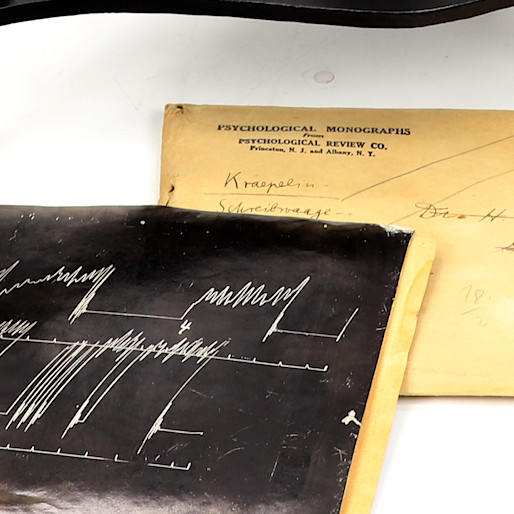 PSYCHOLOGICAL MONOGRAPHS
From
PSYCHOLOGICAL REVIEW CO.
Princeton, N. J. and Albany, N. Y.
Kraepelin
Schreibwaage
Dr. H
18.
4